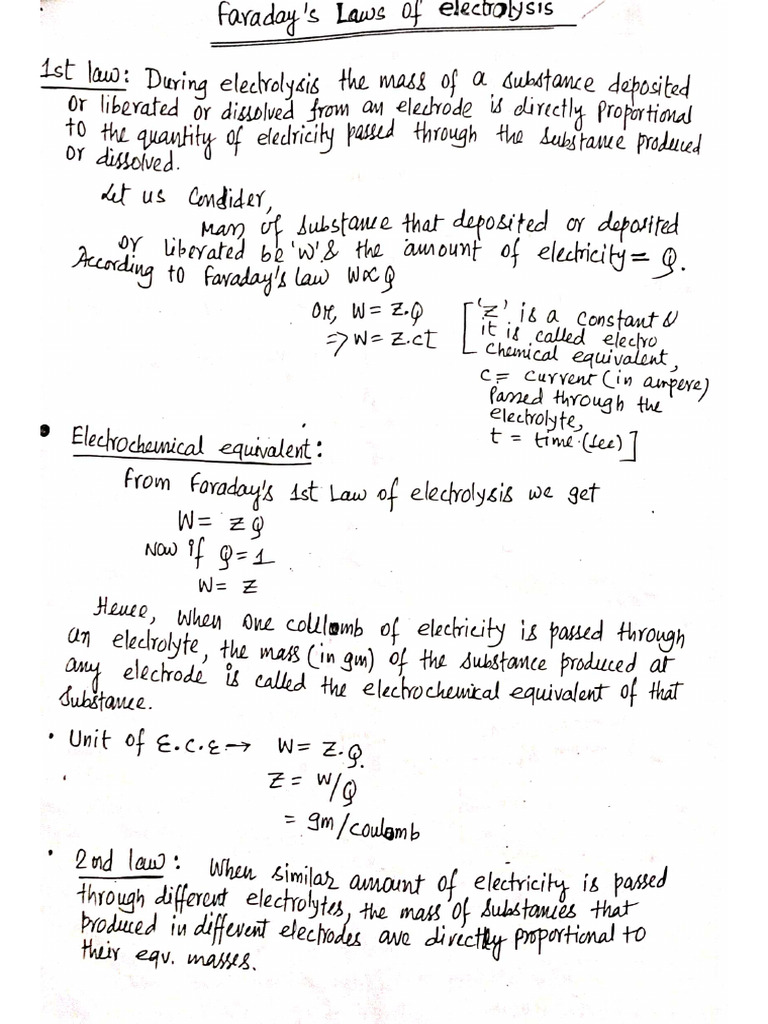 Faraday's Laws of electrolysis
1st law: During electrolysis the mass of a substance deposited
or liberated or dissolved from an electrode is directly proportional
to the quantity of electricity passed through the substance produced
or dissolved.
Let us Condider,
Mass of substance that deposited or deposited
or liberated be 'W' & the amount of electricity = Q.
According to Faraday's law W∝Q
Or, W = Z.Q
=> W = Z.ct
['Z' is a constant &
it is called electro
chemical equivalent,
c = current (in ampere)
Passed through the
electrolyte,
t = time (sec)]
• Electrochemical equivalent:
From Faraday's 1st Law of electrolysis we get
W = ZQ
Now if Q = 1
W = Z
Hence, when one coulomb of electricity is passed through
an electrolyte, the mass (in gm) of the substance produced at
any electrode is called the electrochemical equivalent of that
Substance.
• Unit of E.C.E → W = Z.Q.
Z = W/Q
= gm/coulomb
• 2nd law: When similar amount of electricity is passed
through different electrolytes, the mass of substances that
produced in different electrodes are directly proportional to
their eqv. masses.